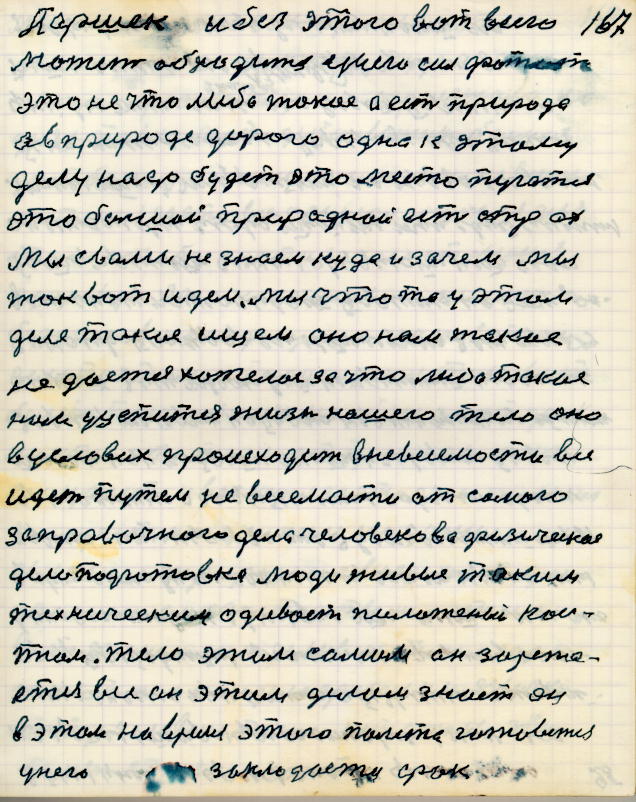 Паршек и без этого вот всего 167
может обходится у него сил
это не что либо такое а есть природа
в природе дорого одна к этому
делу надо будет это место пугатся
это большой природной есть
Мы свами не знаем куда и зачем мы
так вот идем. мы что то у этом
деле такое ищем оно нам такое
не дается хотелос за что либо такое
нам жизн нашего тело оно
в условах происходит в невесимости вы
идет путем не весемости от самого
заправочного дела человекова физическое
дело подготовка люди живые таким
техническим одивают пиложеный кос-
тюм. тело этим самим он
этим делом знает он
в этом на время этого полета готовится
у него закладоется срок